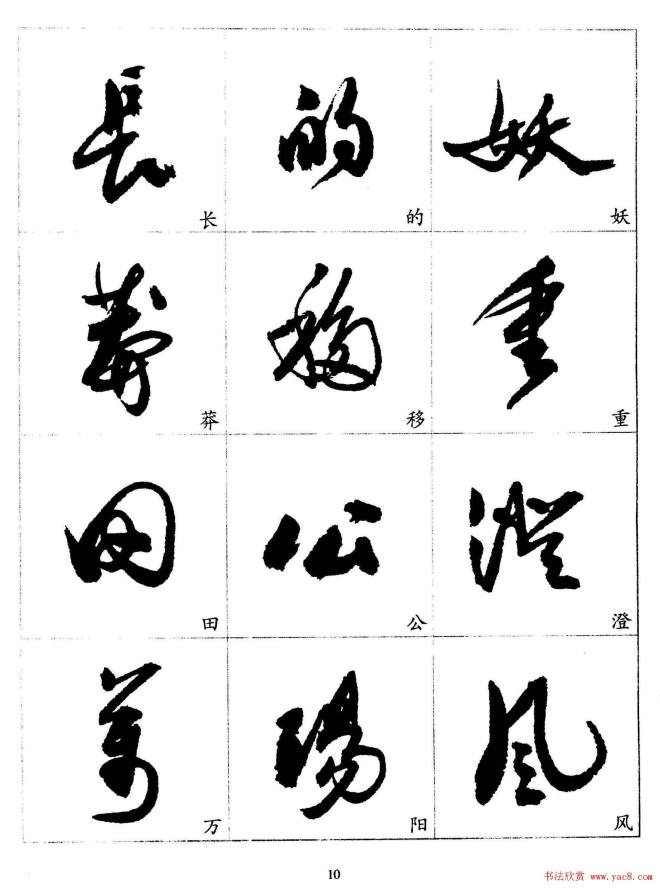 長 的 妖
长 的 妖
莽 移 重
莽 移 重
田 公 澄
田 公 澄
萬 陽 风
万 阳 风
10
书法欣赏 www.yac8.com